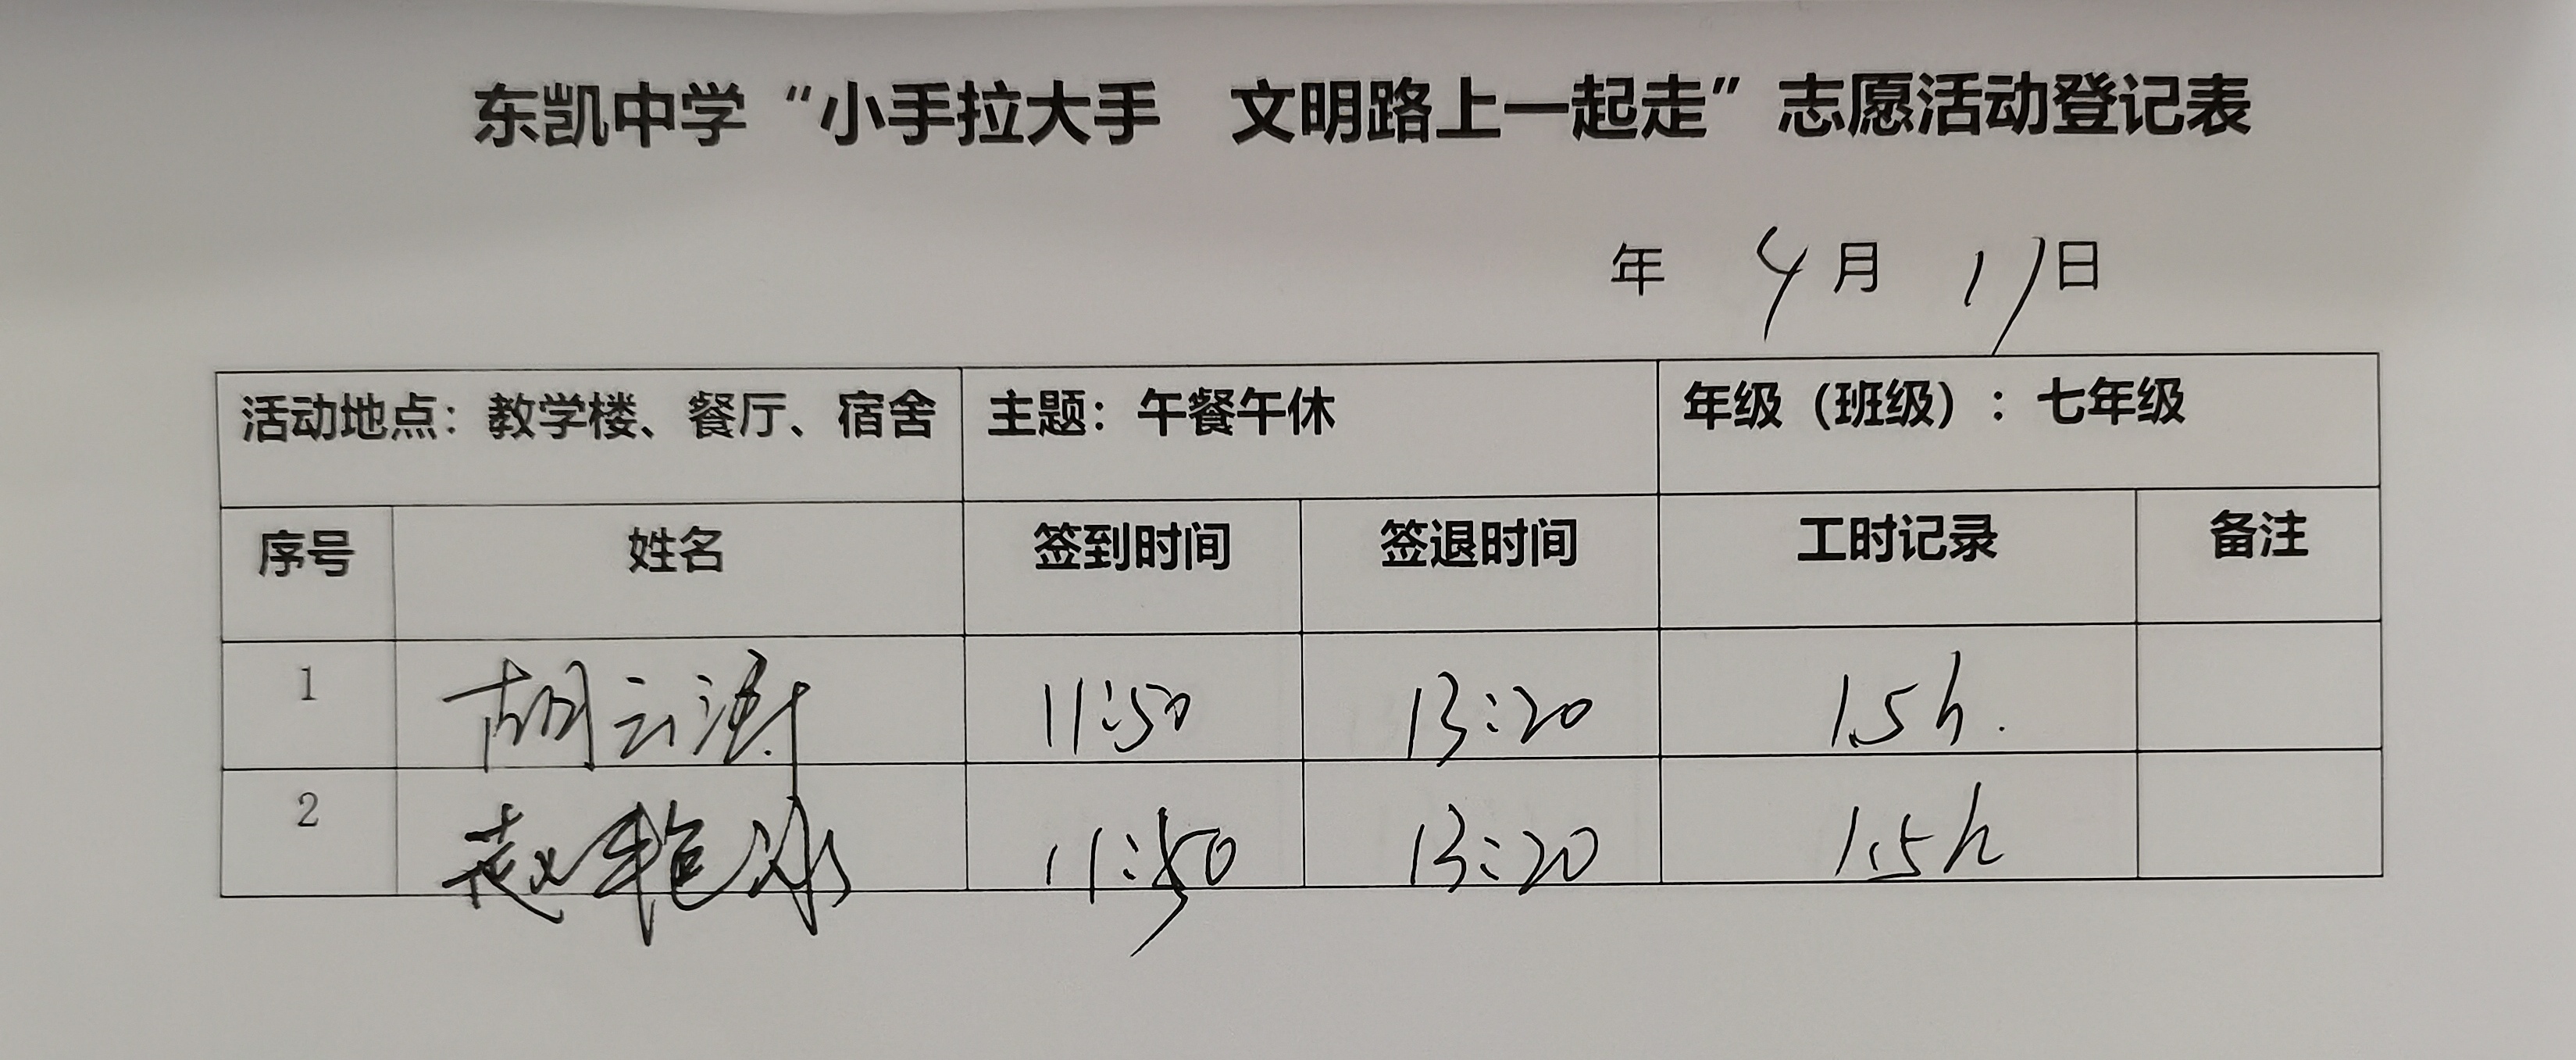 东凯中学“小手拉大手　文明路上一起走”志愿活动登记表
年 4月 17日
活动地点：教学楼、餐厅、宿舍 主题：午餐午休 年级（班级）：七年级
序号 姓名 签到时间 签退时间 工时记录 备注
1 胡云涛 11:50 13:20 1.5h.
2 赵艳冰 11:50 13:20 1.5h